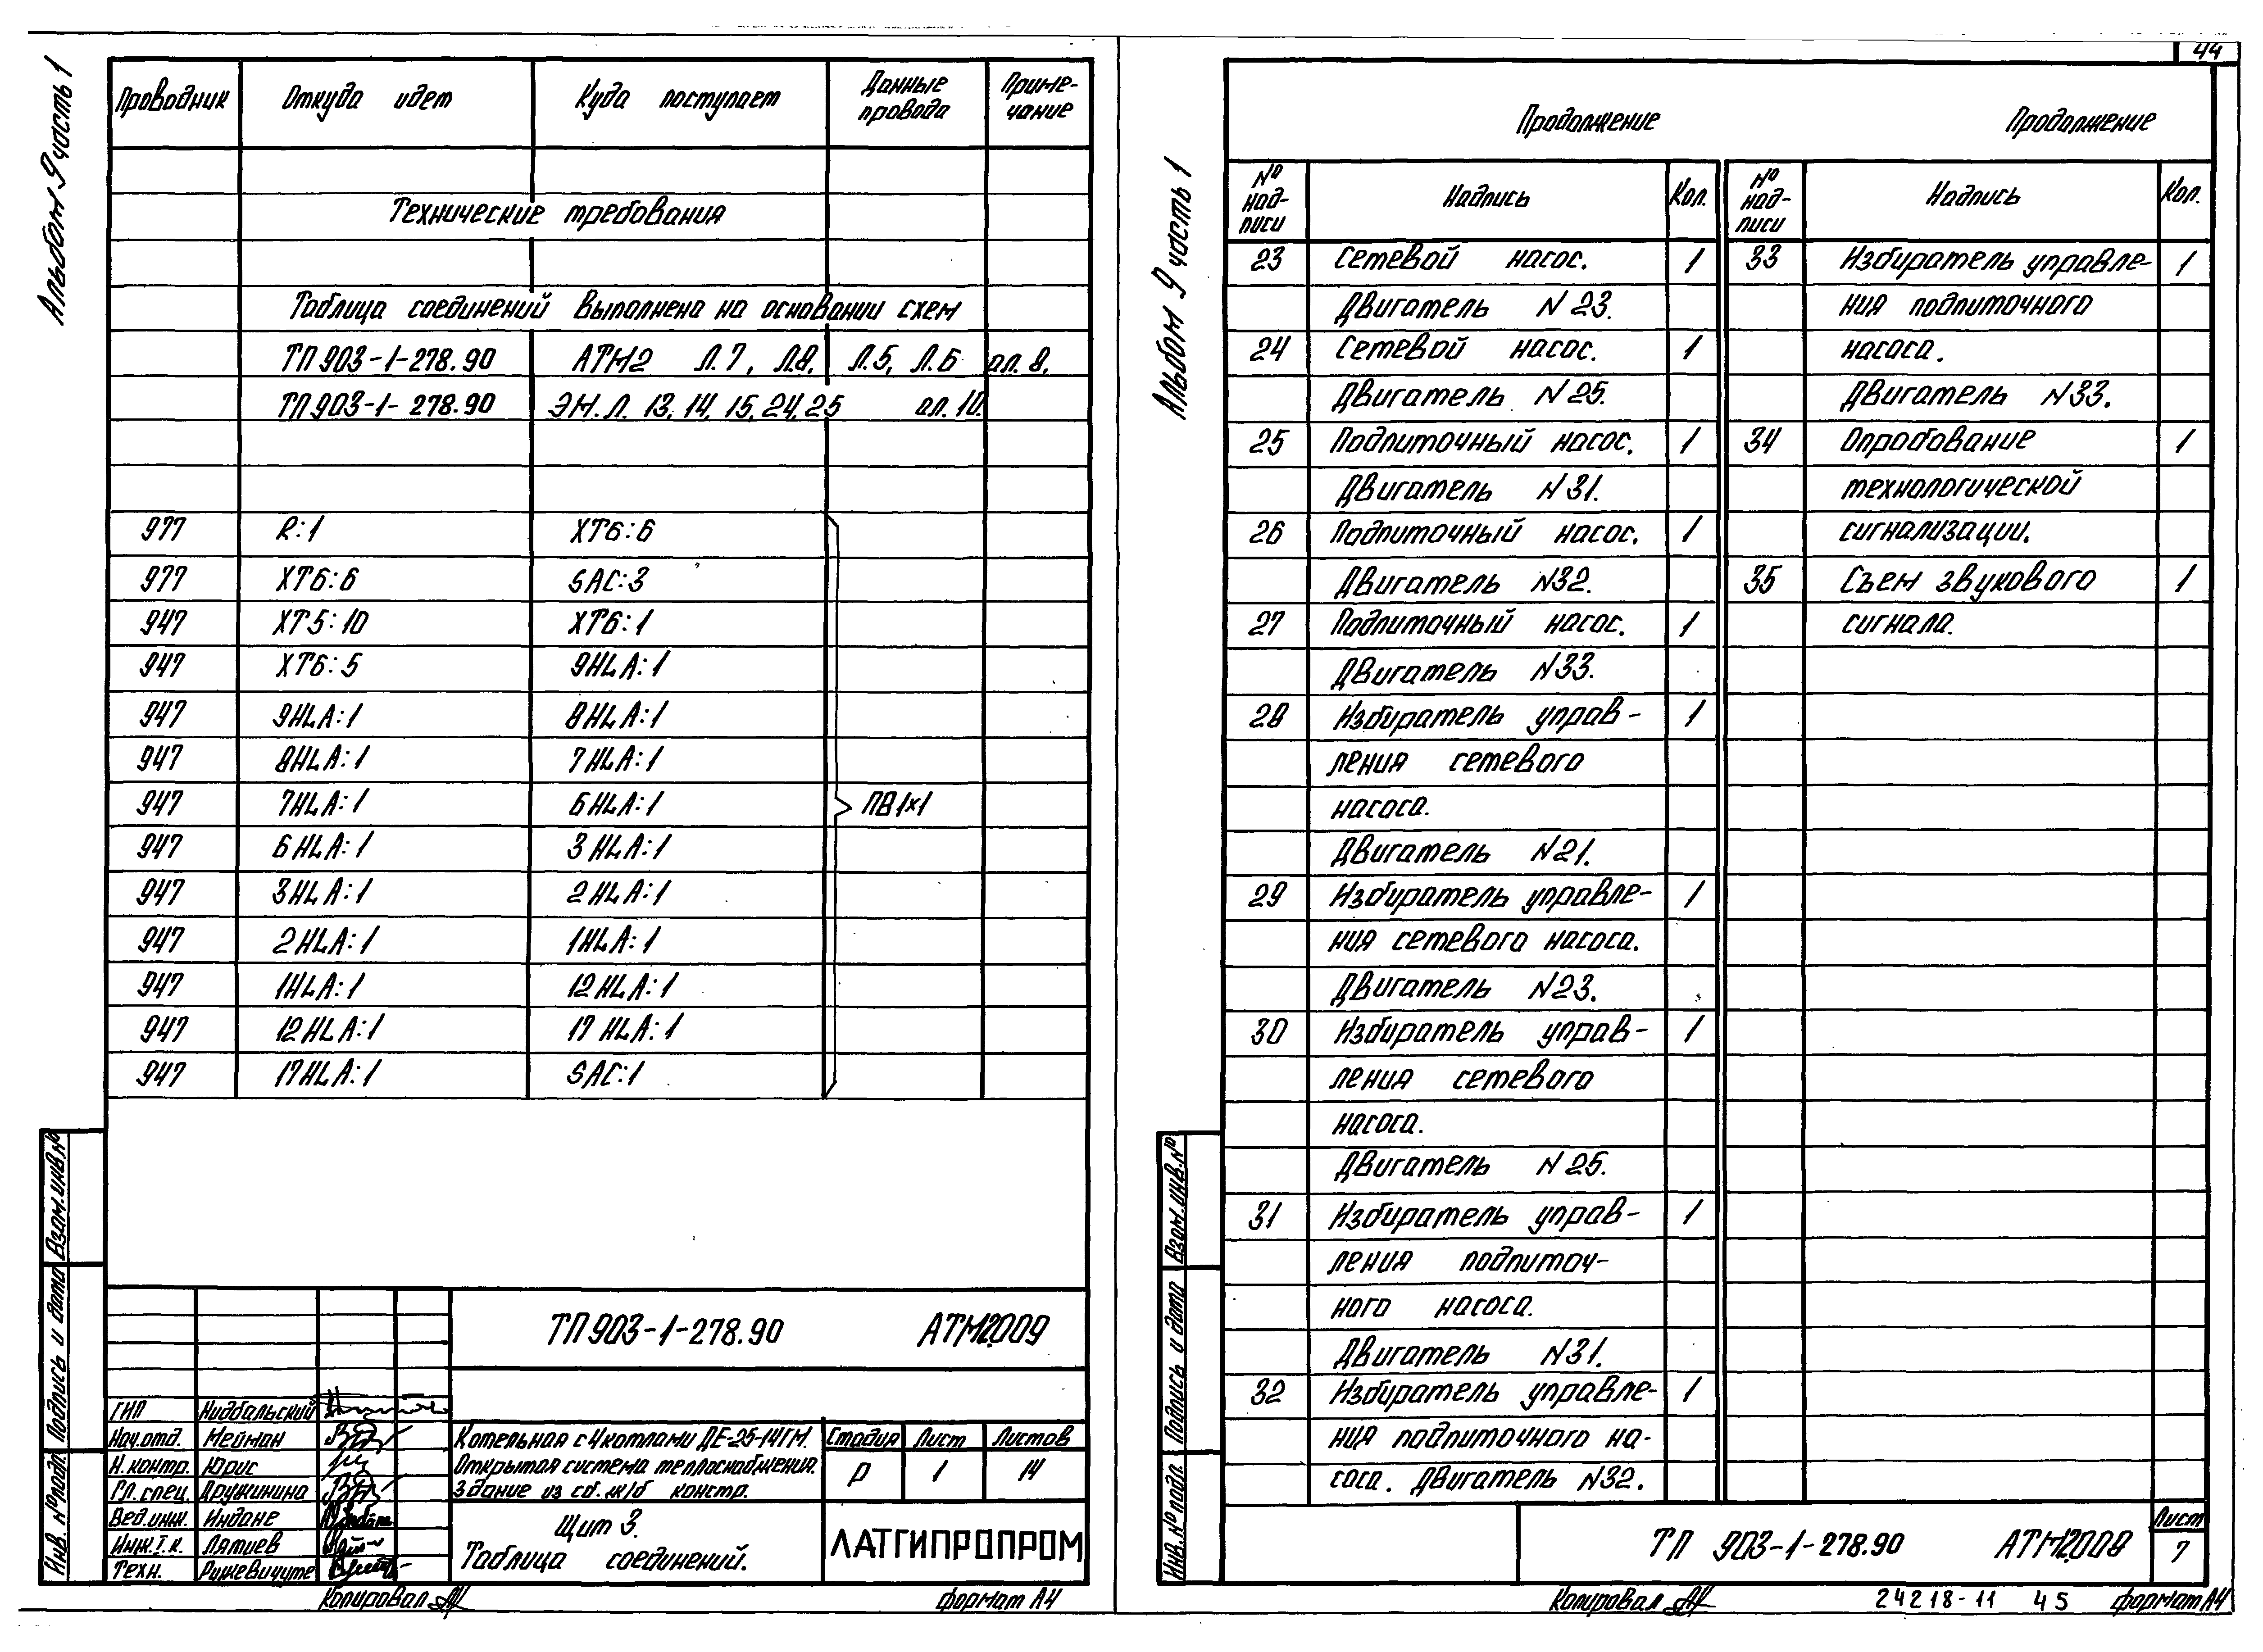 Альбом 9 часть 1
Проводник Откуда идет Куда поступает Данные провода Приме-чание
Технические требования
Таблица соединений выполнена на основании схем
ТП 903-1-278.90 АТМ2 Л.7, Л.8, Л.5, Л.6 ал. 8.
ТП 903-1-278.90 ЭМ. Л. 13, 14, 15, 24, 25 ал. 10.
977 R:1 XT6:6
977 XT6:6 SAC:3
947 XT5:10 XT6:1
947 XT6:5 9HLA:1
947 9HLA:1 8HLA:1
947 8HLA:1 7HLA:1
947 7HLA:1 6HLA:1 ПВ1×1
947 6HLA:1 3HLA:1
947 3HLA:1 2HLA:1
947 2HLA:1 1HLA:1
947 1HLA:1 12HLA:1
947 12HLA:1 17HLA:1
947 17HLA:1 SAC:1
Взам. инв. №
Подпись и дата
Инв. № подл.
ТП 903-1-278.90 АТМ2.009
ГИП Нидбальский
Нач.отд. Мейман
Н. контр. Юрис
Гл. спец. Дружинина
Вед. инж. Индане
Инж. I. к. Лятиев
Техн. Ружевичуте
Котельная с 4 котлами ДЕ-25-14ГМ.
Открытая система теплоснабжения.
Здание из сб. ж/б констр.
Стадия Лист Листов
Р 1 14
Щит 3.
Таблица соединений.
ЛАТГИПРОПРОМ
Копировал
формат А4
44
Альбом 9 часть 1
Продолжение Продолжение
№ над-писи Надпись Кол. № над-писи Надпись Кол.
23 Сетевой насос. 1 33 Избиратель управле- 1
Двигатель N 23. ния подпиточного
24 Сетевой насос. 1 насоса.
Двигатель N25. Двигатель N33.
25 Подпиточный насос. 1 34 Опробование 1
Двигатель N31. технологической
26 Подпиточный насос. 1 сигнализации.
Двигатель N32. 35 Съем звукового 1
27 Подпиточный насос. 1 сигнала.
Двигатель N33.
28 Избиратель управ- 1
ления сетевого
насоса.
Двигатель N21.
29 Избиратель управле- 1
ния сетевого насоса.
Двигатель N23.
30 Избиратель управ- 1
ления сетевого
насоса.
Двигатель N25.
31 Избиратель управ- 1
ления подпиточ-
ного насоса.
Двигатель N31.
32 Избиратель управле- 1
ния подпиточного на-
соса. Двигатель N32.
Взам. инв. №
Подпись и дата
Инв. № подл.
ТП 903-1-278.90 АТМ2.008
Лист
7
Копировал
24218-11 45 формат А4